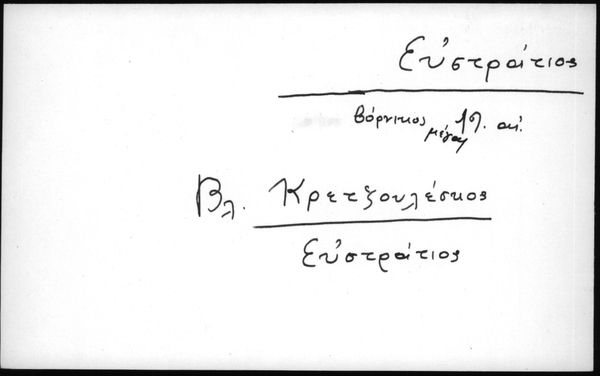 Εὐστράτιος
βόρνικος μέγας 19. αἰ.
Βλ. Κρετζουλέσκος
Εὐστράτιος